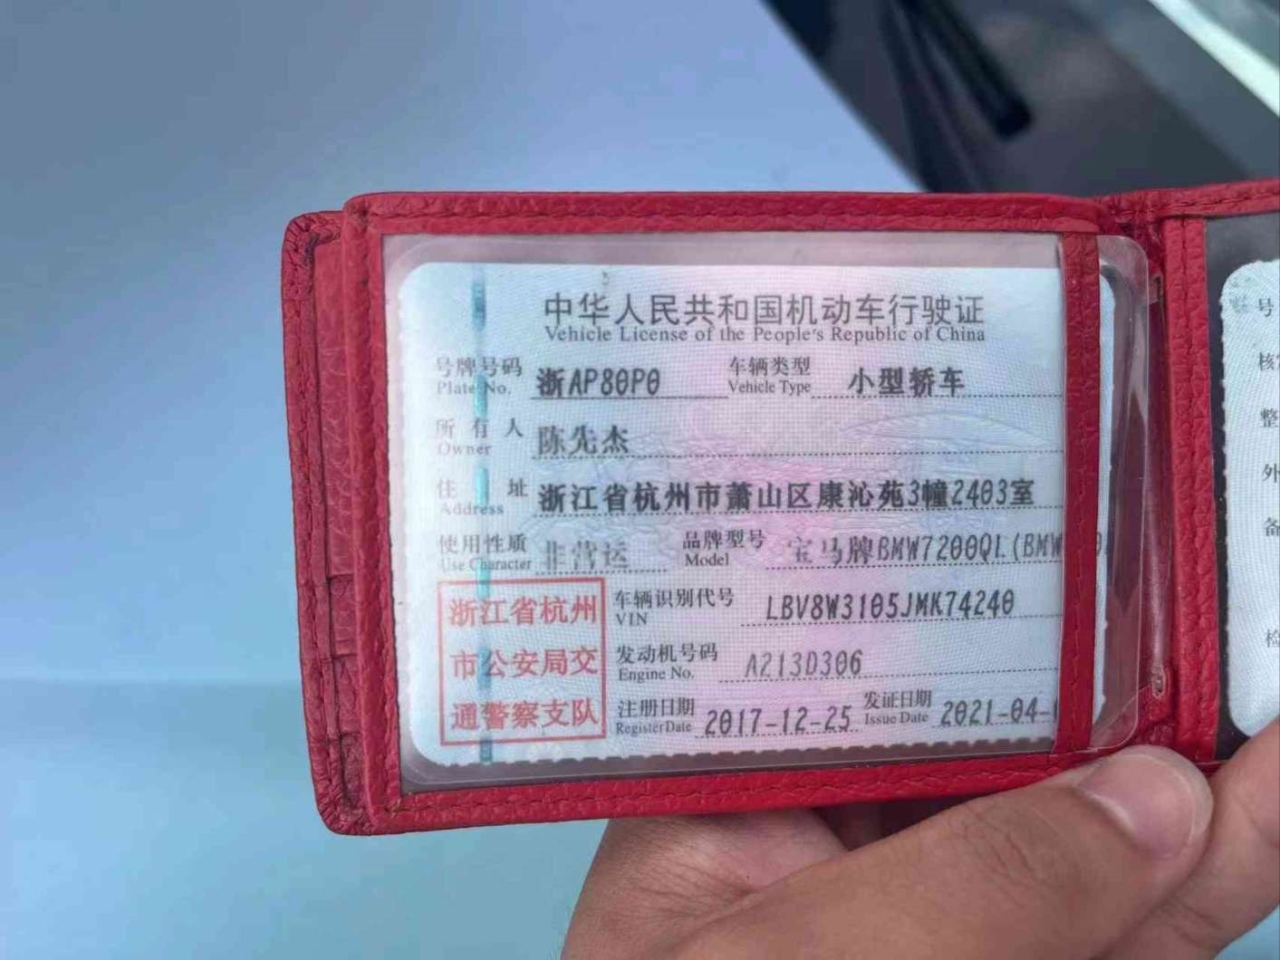 中华人民共和国机动车行驶证
Vehicle License of the People's Republic of China
号牌号码 浙AP80P0 车辆类型 小型轿车
Plate No. Vehicle Type
所有人 陈先杰
Owner
住址 浙江省杭州市萧山区康沁苑3幢2403室
Address
使用性质 非营运 品牌型号 宝马牌BMW7200QL(BMW
Use Character Model
浙江省杭州
市公安局交
通警察支队
车辆识别代号 LBV8W3105JMK74240
VIN
发动机号码 A213D306
Engine No.
注册日期 2017-12-25 发证日期 2021-04-
Register Date Issue Date
号
核
整
外
备
检